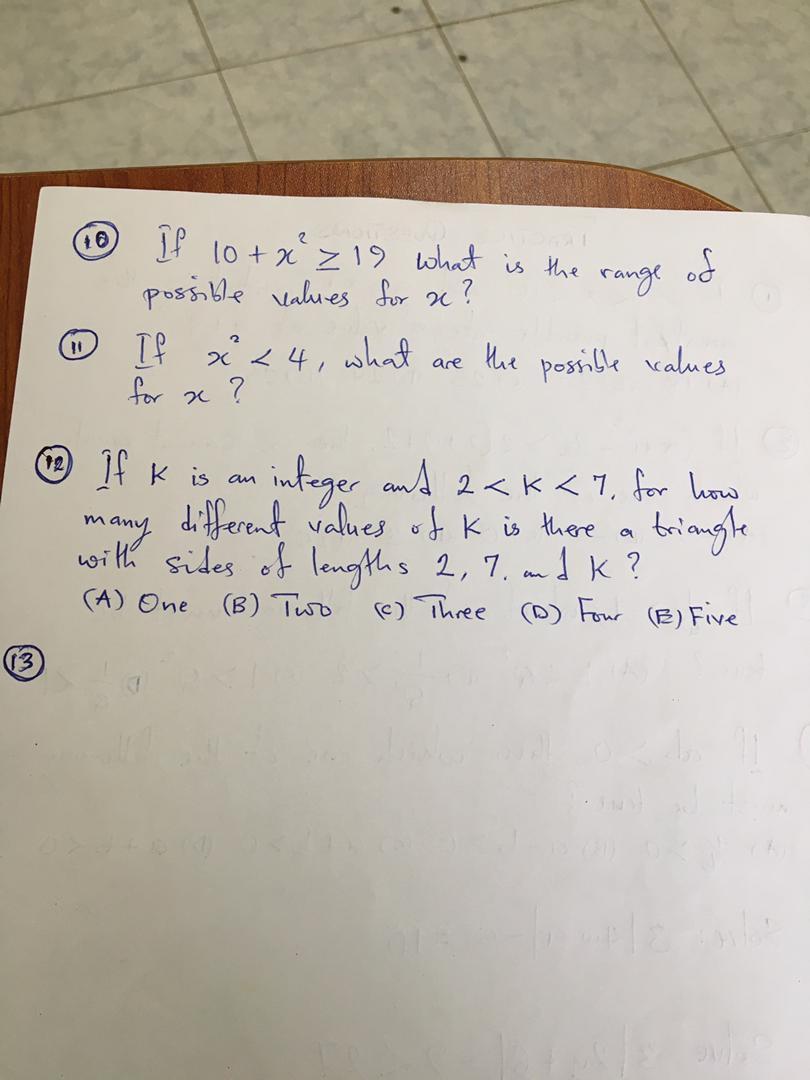 10 If 10 + x² ≥ 19 what is the range of
possible values for x?
11 If x² < 4, what are the possible values
for x ?
12 If K is an integer and 2 < K < 7, for how
many different values of K is there a triangle
with sides of lengths 2, 7, and K ?
(A) One (B) Two (C) Three (D) Four (E) Five
13